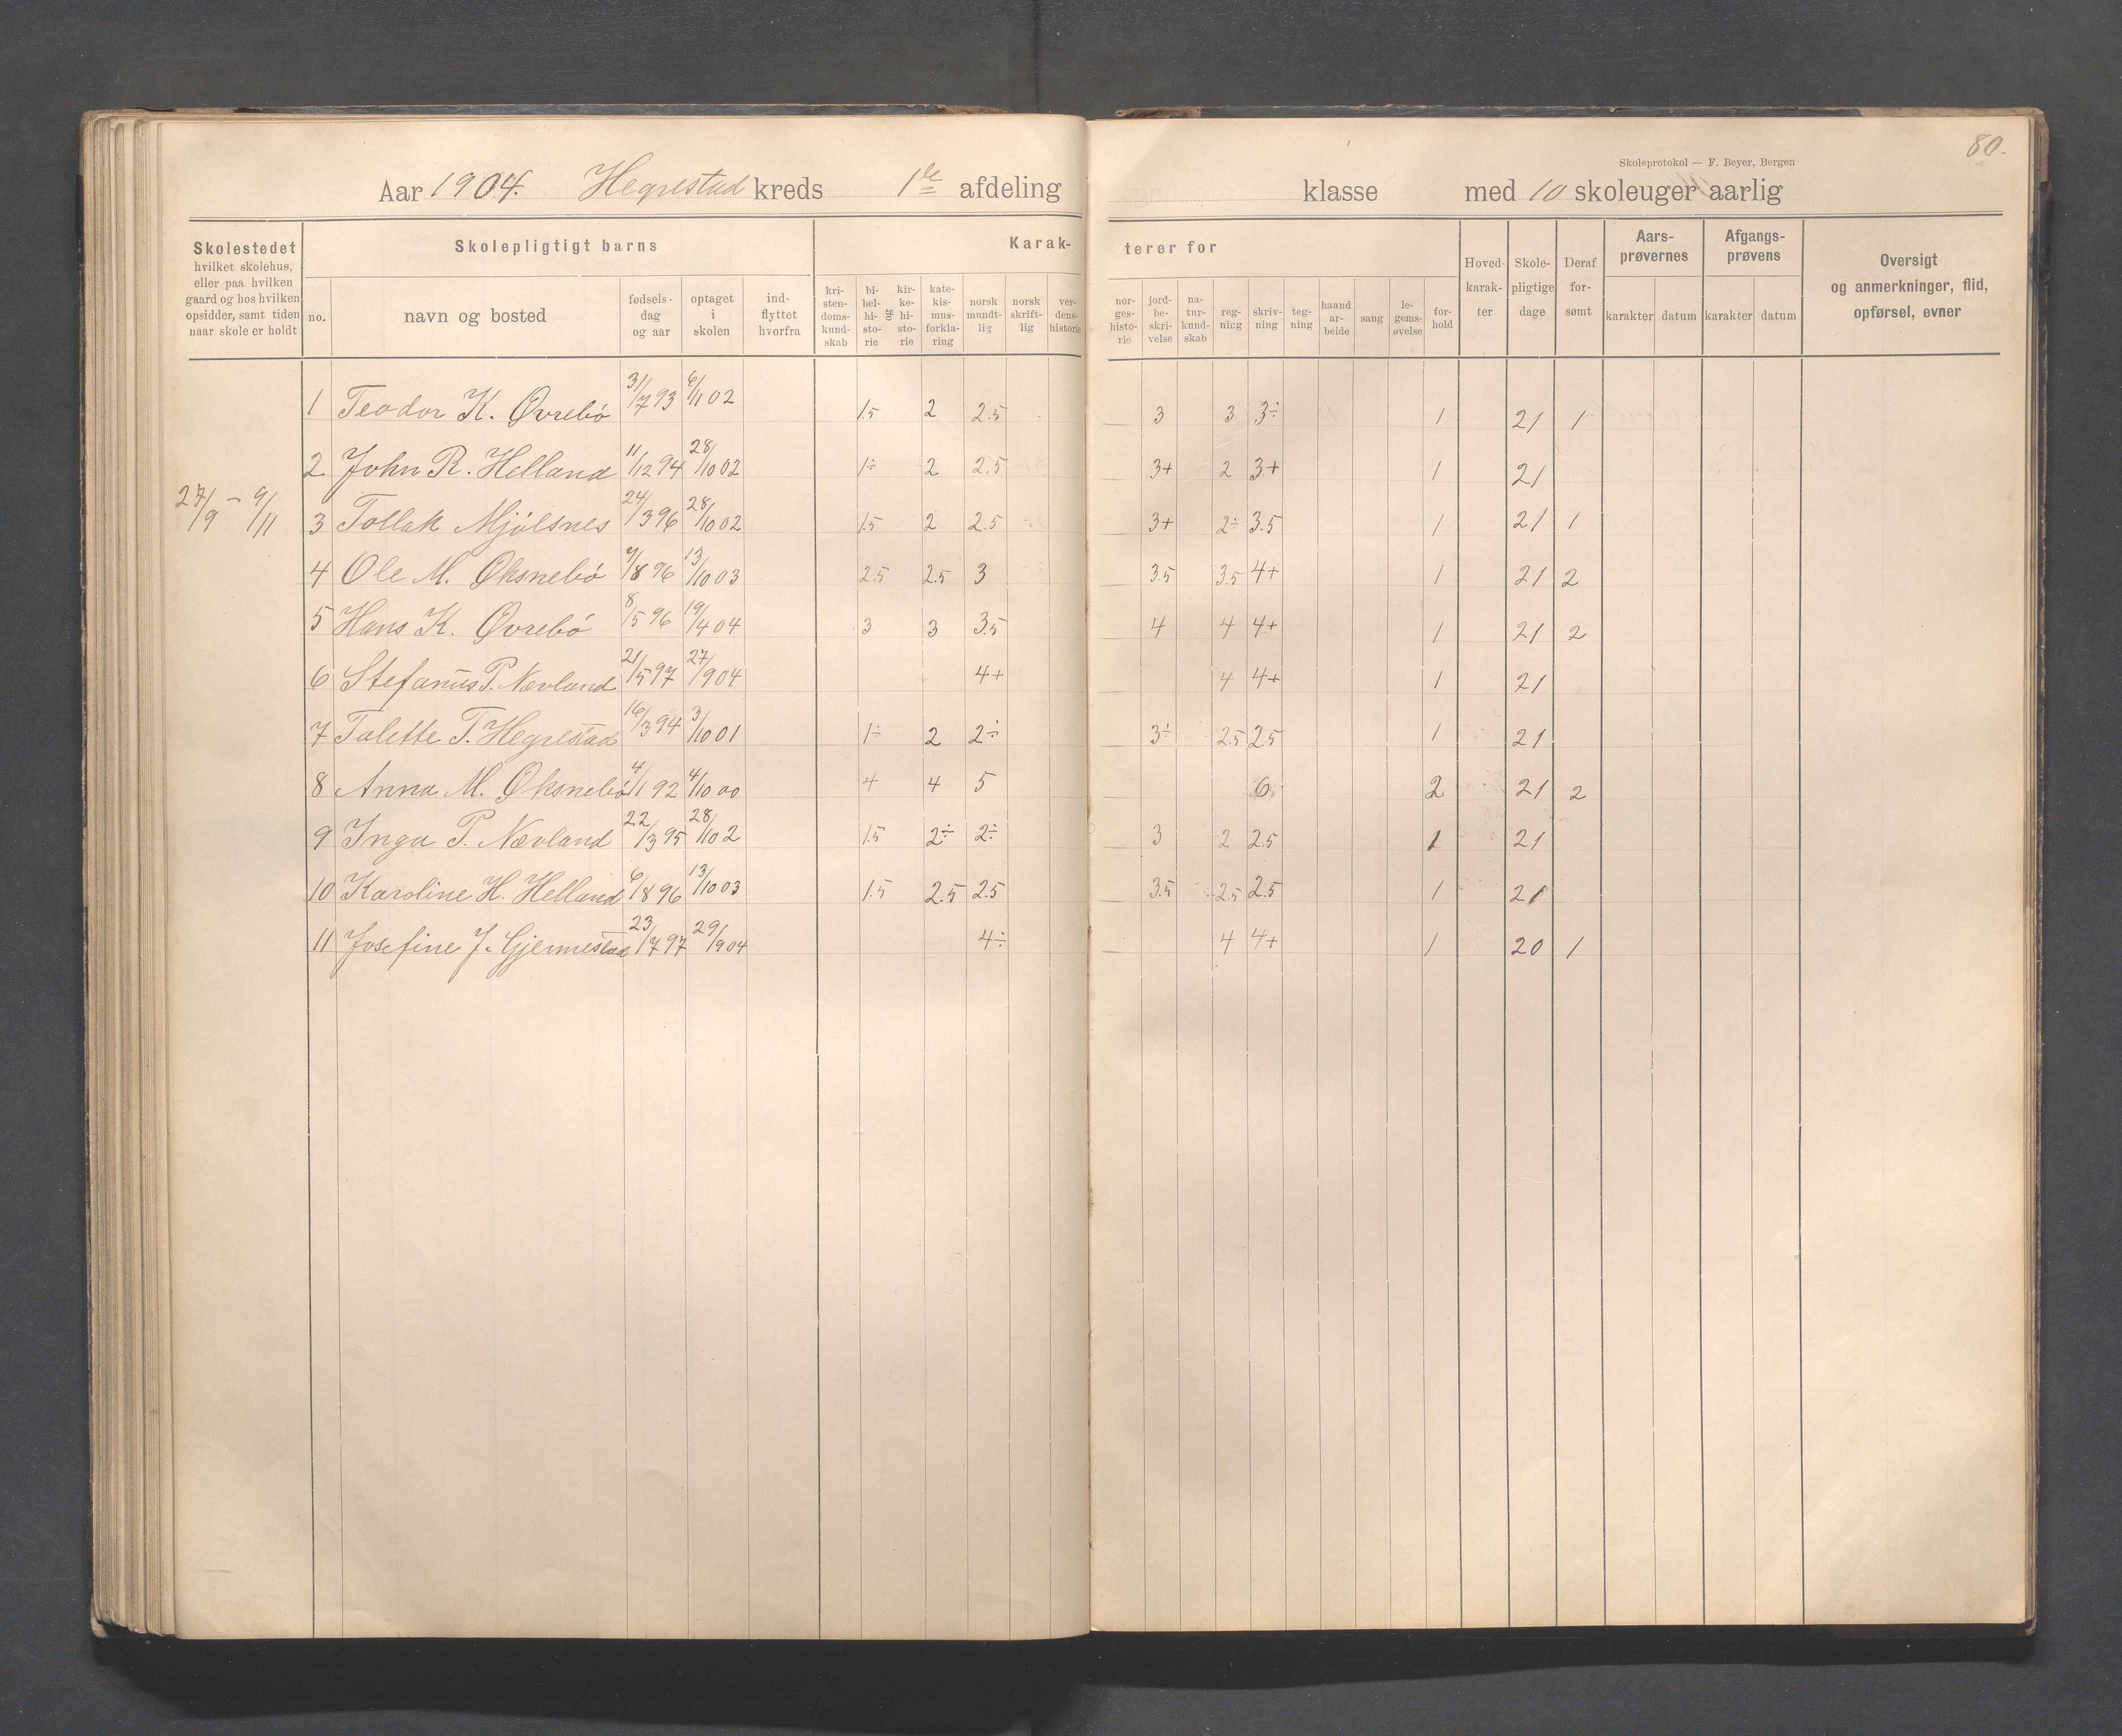 80.
Skoleprotokol — F. Beyer, Bergen
Aar 1904. Hegrestad kreds 1ste afdeling klasse med 10 skoleuger aarlig
Skolestedet hvilket skolehus, eller paa hvilken gaard og hos hvilken opsidder, samt tiden naar skole er holdt
Skolepligtigt barns
Karak- terer for
no. navn og bosted fødsels- dag og aar optaget i skolen ind- flyttet hvorfra
kri- sten- doms- kund- skab
bi- bel- hi- sto- rie og kir- ke- hi- sto- rie
kate- kis- mus- forkla- ring
norsk mundt- lig
norsk skrift- lig
ver- dens- historie
nor- ges- histo- rie
jord- be- skri- velse
na- tur- kund- skab
reg- ning
skriv- ning
teg- ning
haand ar- beide
sang
le- gems- øvelse
for- hold
Hoved- karak- ter
Skole- pligtige dage
Deraf for- sømt
Aars- prøvernes karakter datum
Afgangs- prøvens karakter datum
Oversigt og anmerkninger, flid, opførsel, evner
1 Teodor K. Øvrebø 31/7 93 6/11 02 1.5 2 2.5 3 3 3÷ 1 21 1
2 John R. Helland 11/12 94 28/10 02 1÷ 2 2.5 3+ 2 3+ 1 21
27/9 – 9/11
3 Tollak Mjølsnes 24/3 96 28/10 02 1.5 2 2.5 3+ 2÷ 3.5 1 21 1
4 Ole M. Øksnebø 7/8 96 13/10 03 2.5 2.5 3 3.5 3.5 4+ 1 21 2
5 Hans K. Øvrebø 8/5 96 19/4 04 3 3 3.5 4 4 4+ 1 21 2
6 Stefanus P. Nævland 21/5 97 27/9 04 4+ 4 4+ 1 21
7 Talette T. Hegrestad 16/3 94 3/10 01 1÷ 2 2÷ 3÷ 2.5 2.5 1 21
8 Anna M. Øksnebø 4/1 92 4/10 00 4 4 5 6 2 21 2
9 Inga P. Nævland 22/3 95 28/10 2 1.5 2÷ 2÷ 3 2 2.5 1 21
10 Karoline H. Helland 6/8 96 13/10 03 1.5 2.5 2.5 3.5 2.5 2.5 1 21
11 Josefine J. Gjermestad 23/7 97 29/9 04 4÷ 4 4+ 1 20 1